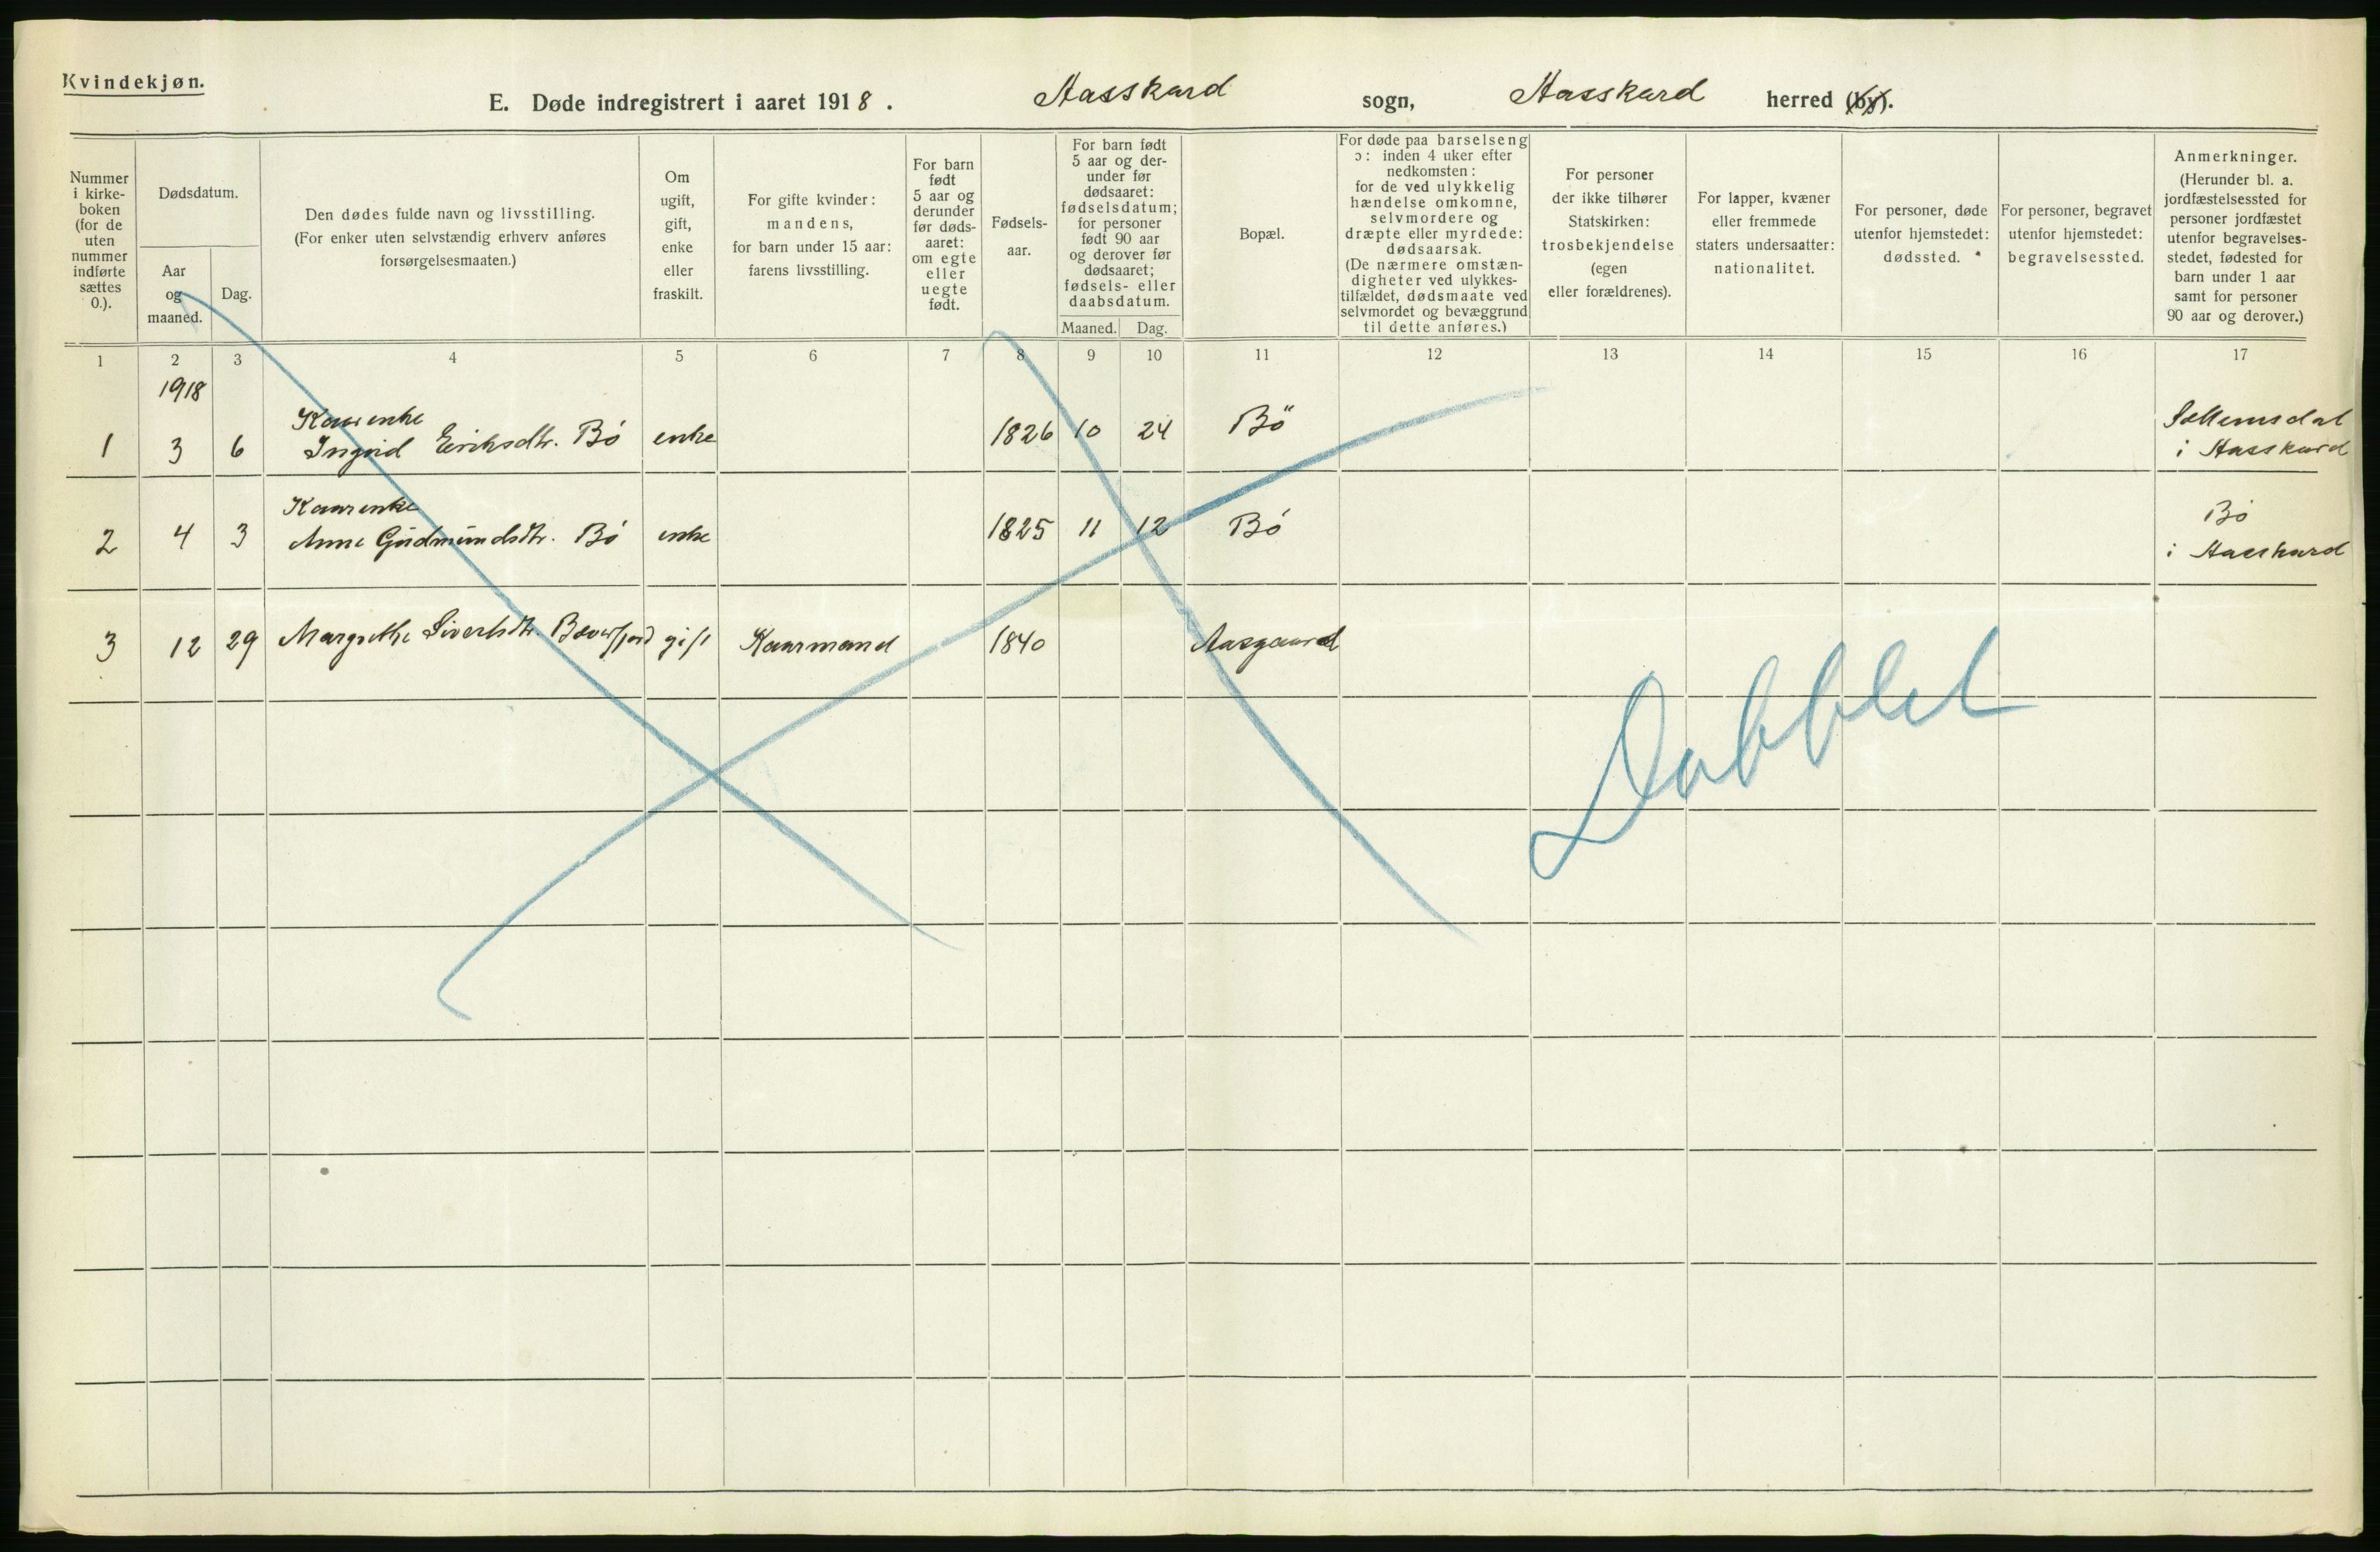 Kvindekjøn.
E. Døde indregistrert i aaret 1918. Aasskard sogn, Aasskard herred (by).
Nummer
i kirke-
boken
(for de
uten
nummer
indførte
sættes
0.).
Dødsdatum.
Aar
og
maaned.
Dag.
Den dødes fulde navn og livsstilling.
(For enker uten selvstændig erhverv anføres
forsørgelsesmaaten.)
Om
ugift,
gift,
enke
eller
fraskilt.
For gifte kvinder:
mandens,
for barn under 15 aar:
farens livsstilling.
For barn
født
5 aar og
derunder
før døds-
aaret:
om egte
eller
uegte
født.
Fødsels-
aar.
For barn født
5 aar og der-
under før
dødsaaret:
fødselsdatum;
for personer
født 90 aar
og derover før
dødsaaret;
fødsels- eller
daabsdatum.
Maaned. Dag.
Bopæl.
For døde paa barselseng
ɔ: inden 4 uker efter
nedkomsten:
for de ved ulykkelig
hændelse omkomne,
selvmordere og
dræpte eller myrdede:
dødsaarsak.
(De nærmere omstæn-
digheter ved ulykkes-
tilfældet, dødsmaate ved
selvmordet og bevæggrund
til dette anføres.)
For personer
der ikke tilhører
Statskirken:
trosbekjendelse
(egen
eller forældrenes).
For lapper, kvæner
eller fremmede
staters undersaatter:
nationalitet.
For personer, døde
utenfor hjemstedet:
dødssted.
For personer, begravet
utenfor hjemstedet:
begravelsessted.
Anmerkninger.
(Herunder bl. a.
jordfæstelsessted for
personer jordfæstet
utenfor begravelses-
stedet, fødested for
barn under 1 aar
samt for personer
90 aar og derover.)
1 2 3 4 5 6 7 8 9 10 11 12 13 14 15 16 17
1918
Kaarenke
1 3 6 Ingrid Eriksdtr. Bö enke 1826 10 24 Bö
i Aasskard
Kaarenke
2 4 3 Anne Gudmundsdtr. Bö enke 1825 11 12 Bö Bö
i Aasskard
3 12 29 Margrethe Sivertsdtr. Bæverfjord gift Kaarmand 1840 Aasgaard
Dobblet